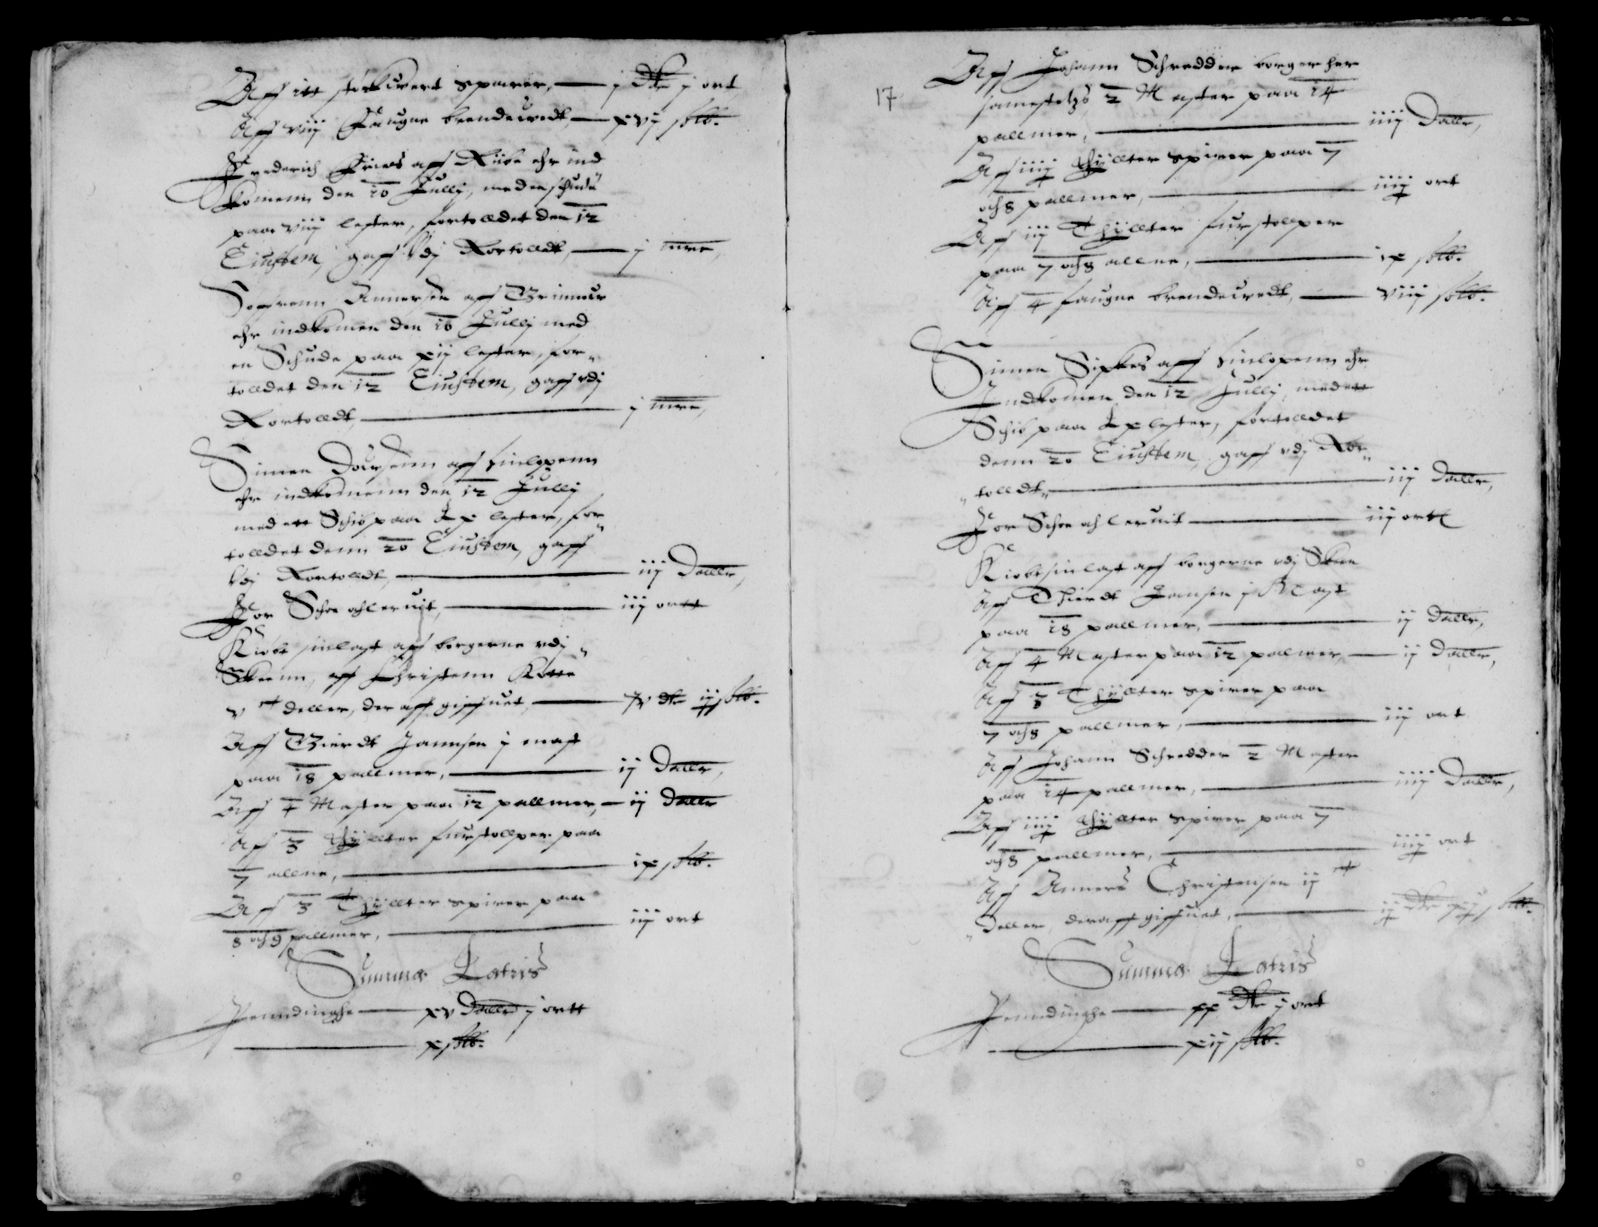 Aff itt  sparer, j dlr j ort
Aff viij faugne brendewedt, xvj slb.
Frederich  aff Riibe ehr ind
komenn den 10 Julij, med en schude
paa viij lester, fortolldet den 12
Eiusdem, gaff vdj Rortolldt, j mre,
Soffrenn Annersen aff
ehr indkomen den 10 Julij med
en Schude paa xij lester, for-
tolldet den 12 Eiusdem, gaff vdj
Rortolldt, j mre,
Simen  aff Hinlopenn
ehr indkomenn den 12 Julij
med ett Schib paa Lx lester, for-
tolldet denn 20 Eiusdem, gaff
vdj Rortolldt, iij Daller,
For Schre och leruit, iij ortt
Kiobt sin last aff borgerne vdj
Skeenn, aff Christenn
v deller, der aff giffuet, slb.
Aff Tierdt Jannsen j mast
paa 18 pallmer, ij Daller,
Aff 4 Master paa 12 pallmer, ij Daller
Aff 3 thyllter furstollper paa
7 allne, ix slb.
Aff 3 Thyllter spirer paa
8 och 9 pallmer, iij ort
Summa Latris
Penndinghe xv Daller j ortt
x slb.
17
Aff Johann Schredder borger her
samestetz 2 Master paa 14
pallmer, iiij Daller,
Aff iiij thyllter spirer paa 7
och 8 pallmer, iiij ort
Aff iij Thyllter furstollper
paa 7 och 8 allne, ix slb.
Aff 4 faugne brendewedt, viij slb.
Simen Sipkes aff Hinlopenn ehr
Indkomen den 12 Julij, med ett
Schib paa Lx lester, fortolldet
denn 20 Eiusdem, gaff vdj Ror-
tolldt, iij Daller,
For Schre och leruit iij ortt
Kiobt sin last aff borgerne vdj Skeen
Aff Thierdt Jansen j Mast
paa 18 pallmer, ij Daller,
Aff 4 Master paa 12 palmer, ij Daller,
Aff 3 Thyllter spirer paa
7 och 8 pallmer, iij ort
Aff Johann Schredder 2 Master
paa 14 pallmer, iiij Daller,
Aff iiij thyllter spirer paa 7
och 8 pallmer, iiij ort
Aff Anners Christensen ij
Deller, der aff giffuet, slb.
Summa Latris
Penndinghe xx dlr j ort
xij slb.